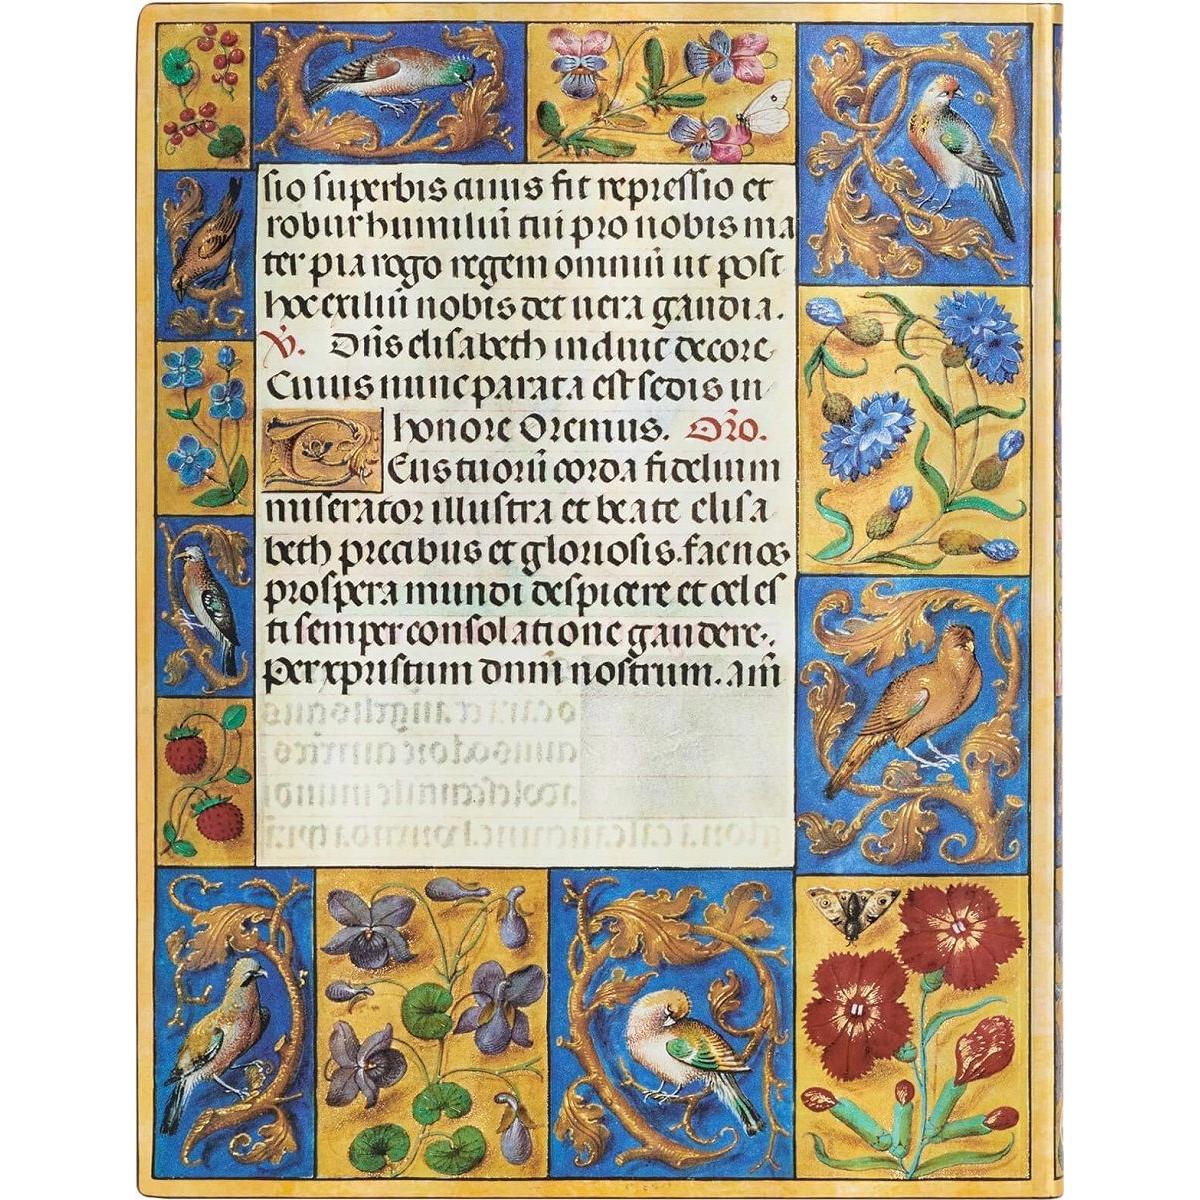 sio superbis cuius fit repressio et
robur humiliū tui pro nobis ma
ter pia rogo regem omniū ut post
hoc exiliū nobis det uera gaudia.
V. Dn̄s elisabeth induit decore
Cuius nunc parata est sedis in
honore Oremus. Or̄o.
Deus tuorū corda fidelium
miserator illustra et beate elisa
beth precibus et gloriosis. fac nos
prospera mundi despicere et celes
ti semper consolatione gaudere.
Per xpristum dn̄m nostrum. am̄